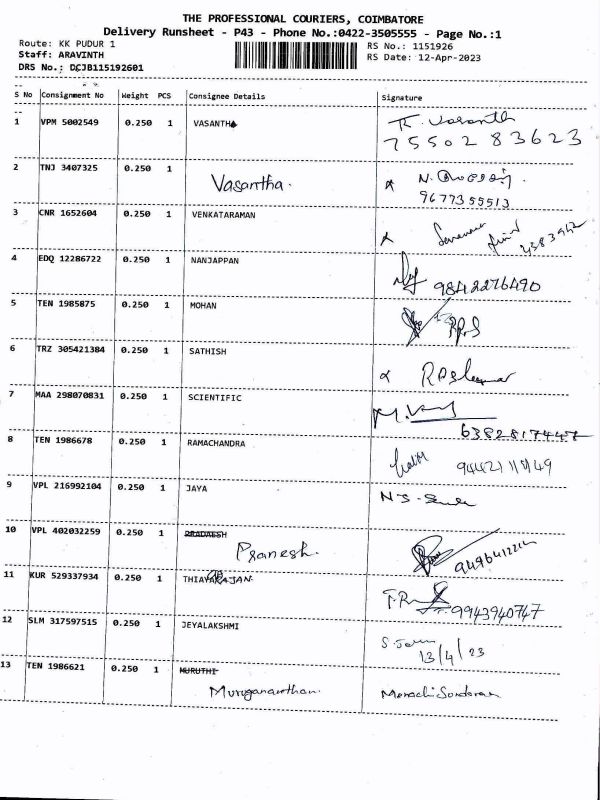 THE PROFESSIONAL COURIERS, COIMBATORE
Delivery Runsheet - P43 - Phone No.:0422-3505555 - Page No.:1
Route: KK PUDUR 1
RS No.: 1151926
Staff: ARAVINTH
RS Date: 12-Apr-2023
DRS No.: DCJB115192601
S No Consignment No Weight PCS Consignee Details Signature
1 VPM 5002549 0.250 1 VASANTHA R. Vasanth
7550283623
2 TNJ 3407325 0.250 1
Vasantha. 9677355513
3 CNR 1652604 0.250 1 VENKATARAMAN
4 EDQ 12286722 0.250 1 NANJAPPAN
9842276490
5 TEN 1985875 0.250 1 MOHAN
6 TRZ 305421384 0.250 1 SATHISH
7 MAA 298070831 0.250 1 SCIENTIFIC
6382817447
8 TEN 1986678 0.250 1 RAMACHANDRA
9 VPL 216992104 0.250 1 JAYA
10 VPL 402032259 0.250 1 PRADAESH
Pranesh.
11 KUR 529337934 0.250 1 THIAYARAJAN
9943940747
12 SLM 317597515 0.250 1 JEYALAKSHMI
13/4/23
13 TEN 1986621 0.250 1 MURUTHI
Murugananthan